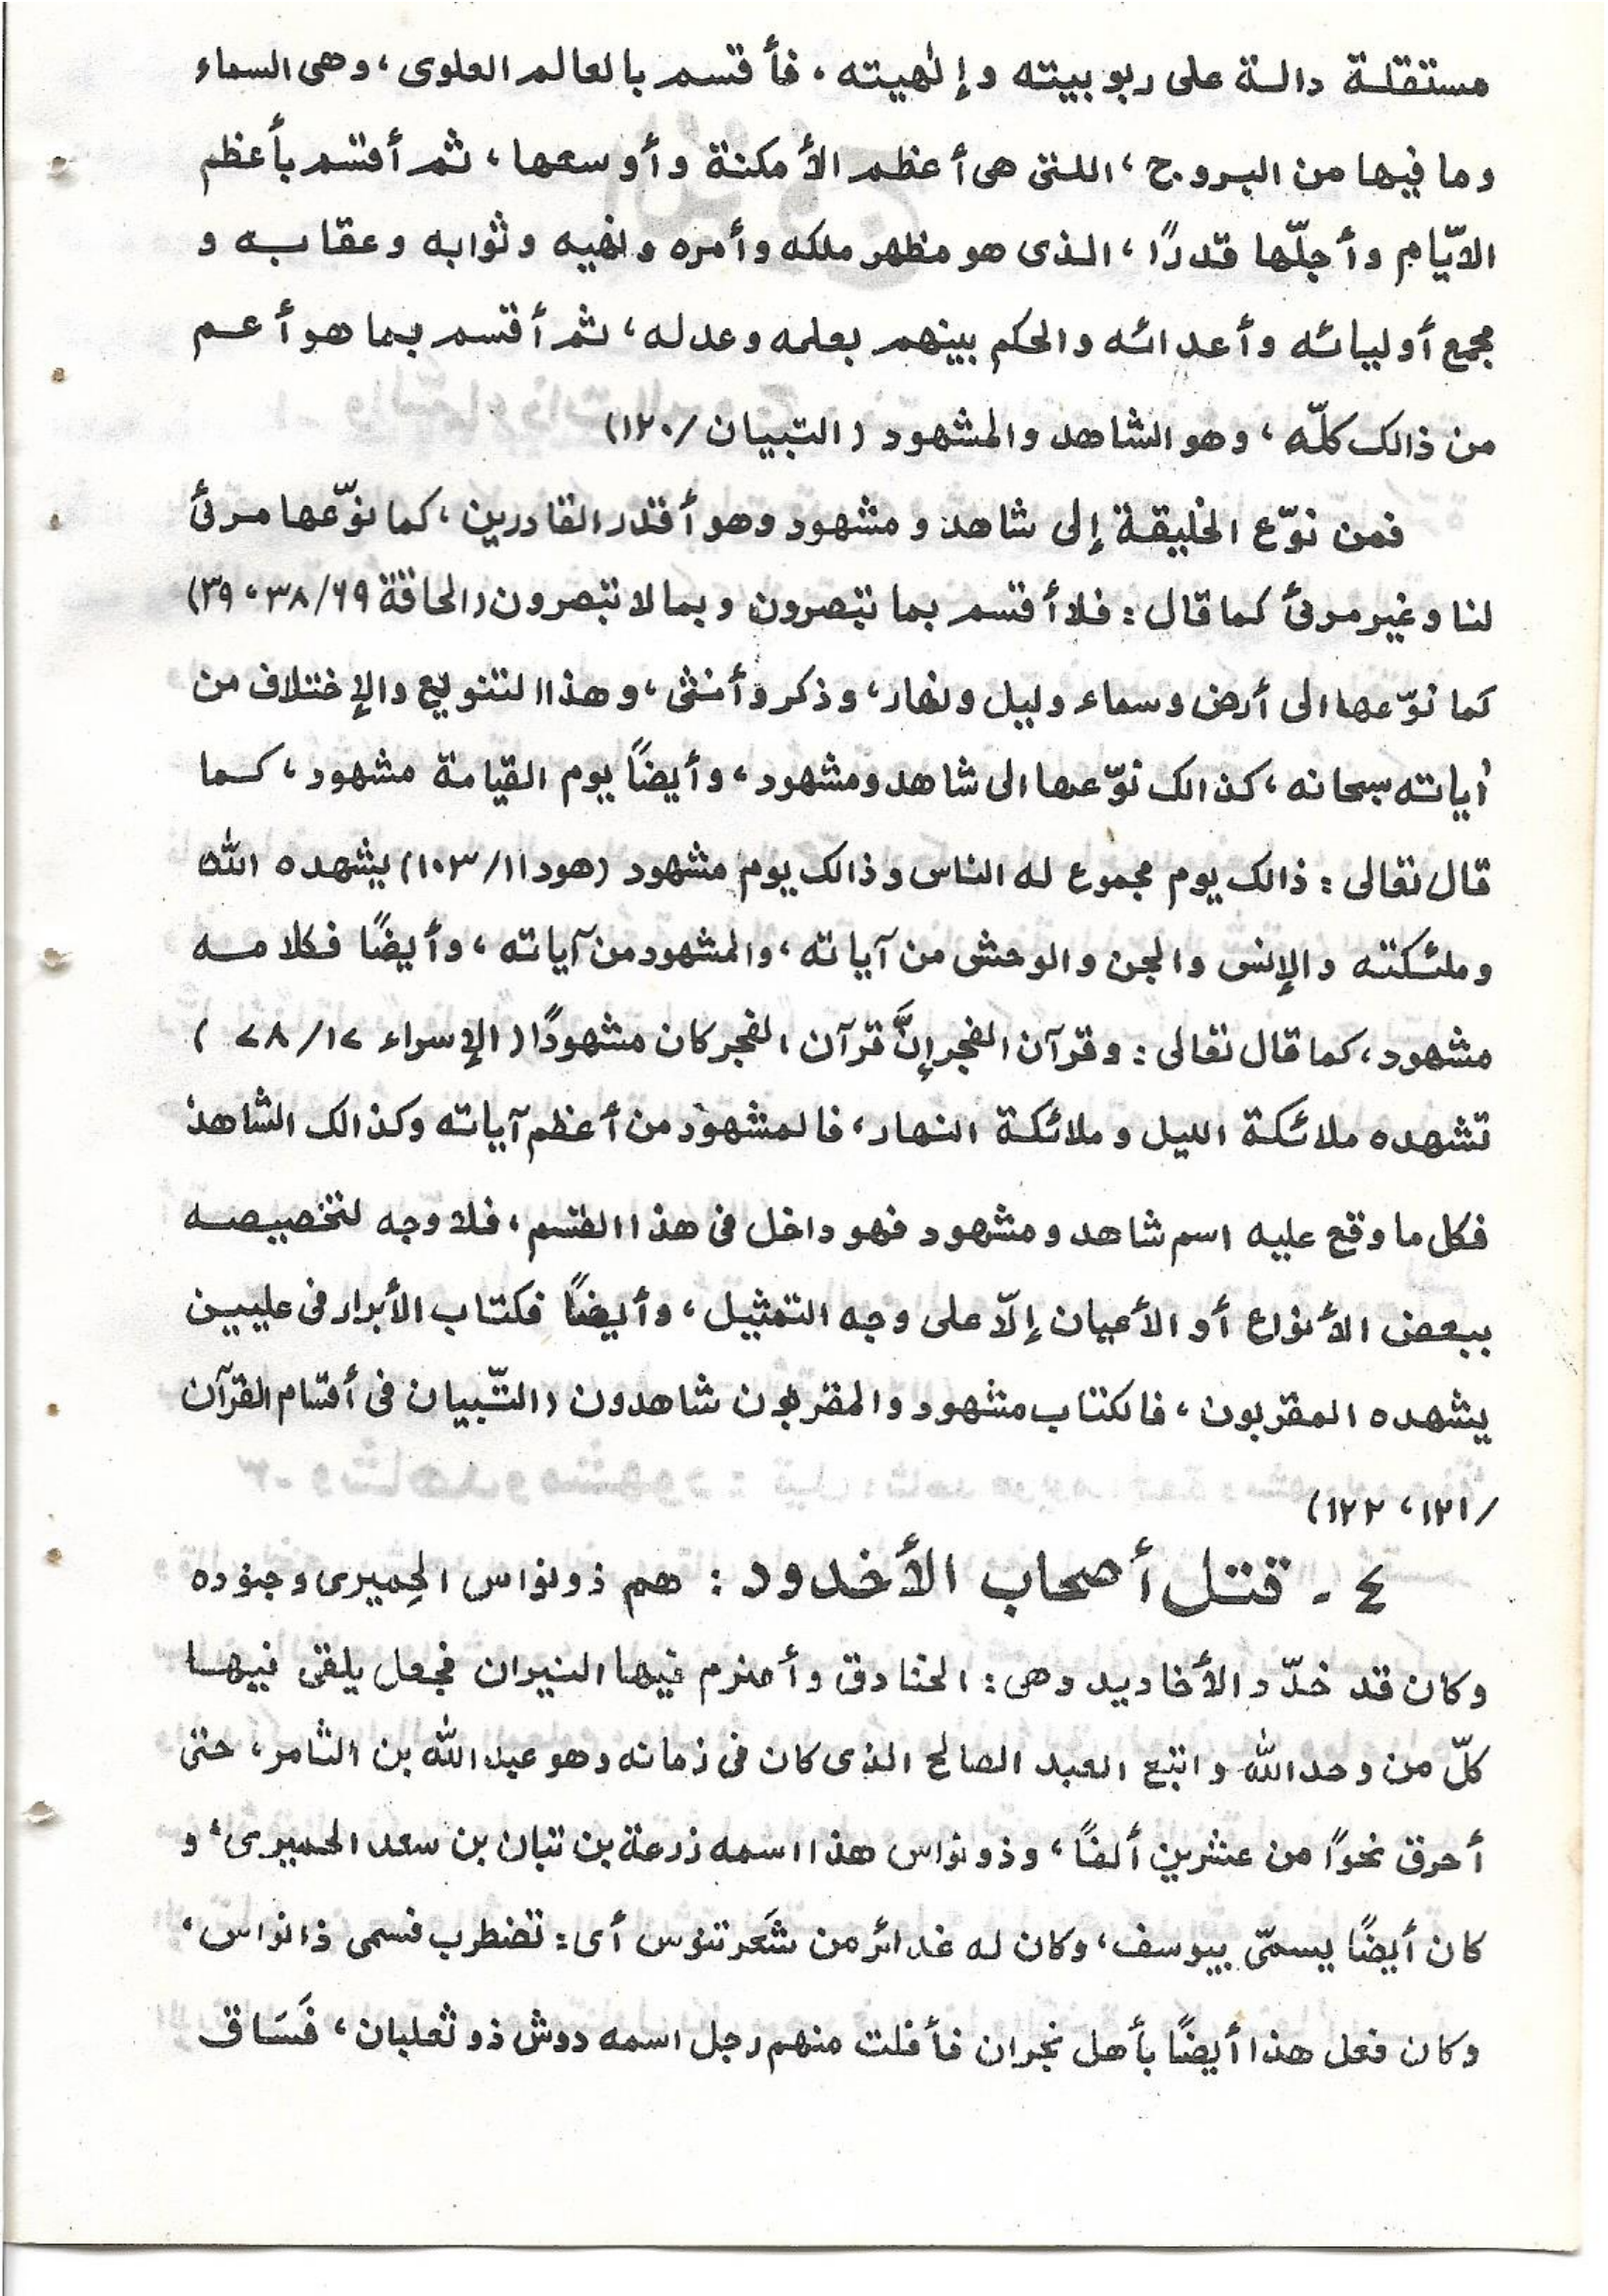 مستقلة دالة على ربوبيته وإلٰهيته ، فأقسم بالعالم العلوى ، وهى السماء
وما فيها من البروج ، اللتى هى أعظم الأمكنة وأوسعها ، ثم أقسم بأعظم
الايّام وأجلّها قدرًا ، الذى هو مظهر ملكه وأمره ونهيه وثوابه وعقابه و
مجمع أوليائه وأعدائه والحكم بينهم بعلمه وعدله ، ثم أقسم بما هو أعم
من ذالك كلّه ، وهو الشاهد والمشهود (التبيان/١٢٠)
فمن نوّع الخليقة إلى شاهد ومشهود وهو أقدر القادرين ، كما نوّعها مرئ
لنا وغير مرئ كما قال : فلا أقسم بما تبصرون وبما لا تبصرون (الحاقة ٦٩/٣٨ ، ٣٩)
كما نوّعها الى أرض وسماء وليل ونهار ، وذكر وأنثى ، وهذا التنويع والإختلاف من
أياته سبحانه ، كذالك نوّعها الى شاهد ومشهود ، وأيضًا يوم القيامة مشهود ، كما
قال تعالى : ذالك يوم مجموع له الناس وذالك يوم مشهود (هود ١١/١٠٣) يشهده الله
وملئكته والإنس والجن والوحش من آياته ، والمشهود من آياته ، وأيضًا فكلامه
مشهود ، كما قال تعالى : وقرآن الفجر إنَّ قرآن الفجر كان مشهودًا (الإسراء ١٧/٧٨ )
تشهده ملائكة الليل وملائكة النهار ، فالمشهود من أعظم آياته وكذالك الشاهد
فكل ما وقع عليه اسم شاهد ومشهود فهو داخل فى هذا القسم ، فلا وجه لتخصيصه
ببعض الأنواع أو الأعيان إلّا على وجه التمثيل ، وأيضًا فكتاب الأبرار فى عليين
يشهده المقربون ، فالكتاب مشهود والمقربون شاهدون (التّبيان فى أقسام القرآن
/١٢١ ، ١٢٢)
٤ - قتل أصحاب الأخدود : هم ذونواس الحِميرى وجنوده
وكان قد خدّد الأخاديد وهى : الخنادق وأضرم فيها النيران فجعل يلقى فيها
كلّ من وحد الله واتبع العبد الصالح الذى كان فى زمانه وهو عبد الله بن الثامر ، حتى
أحرق نحوًا من عشرين ألفًا ، وذونواس هذا اسمه زرعة بن تبان بن سعد الحميرى ، و
كان أيضًا يسمّى بيوسف ، وكان له غدائر من شَعر تنوس أى : تضطرب فسمى ذانواس ،
وكان فعل هذا أيضًا بأهل نجران فأفلت منهم رجل اسمه دوش ذو ثعلبان ، فَسَاق